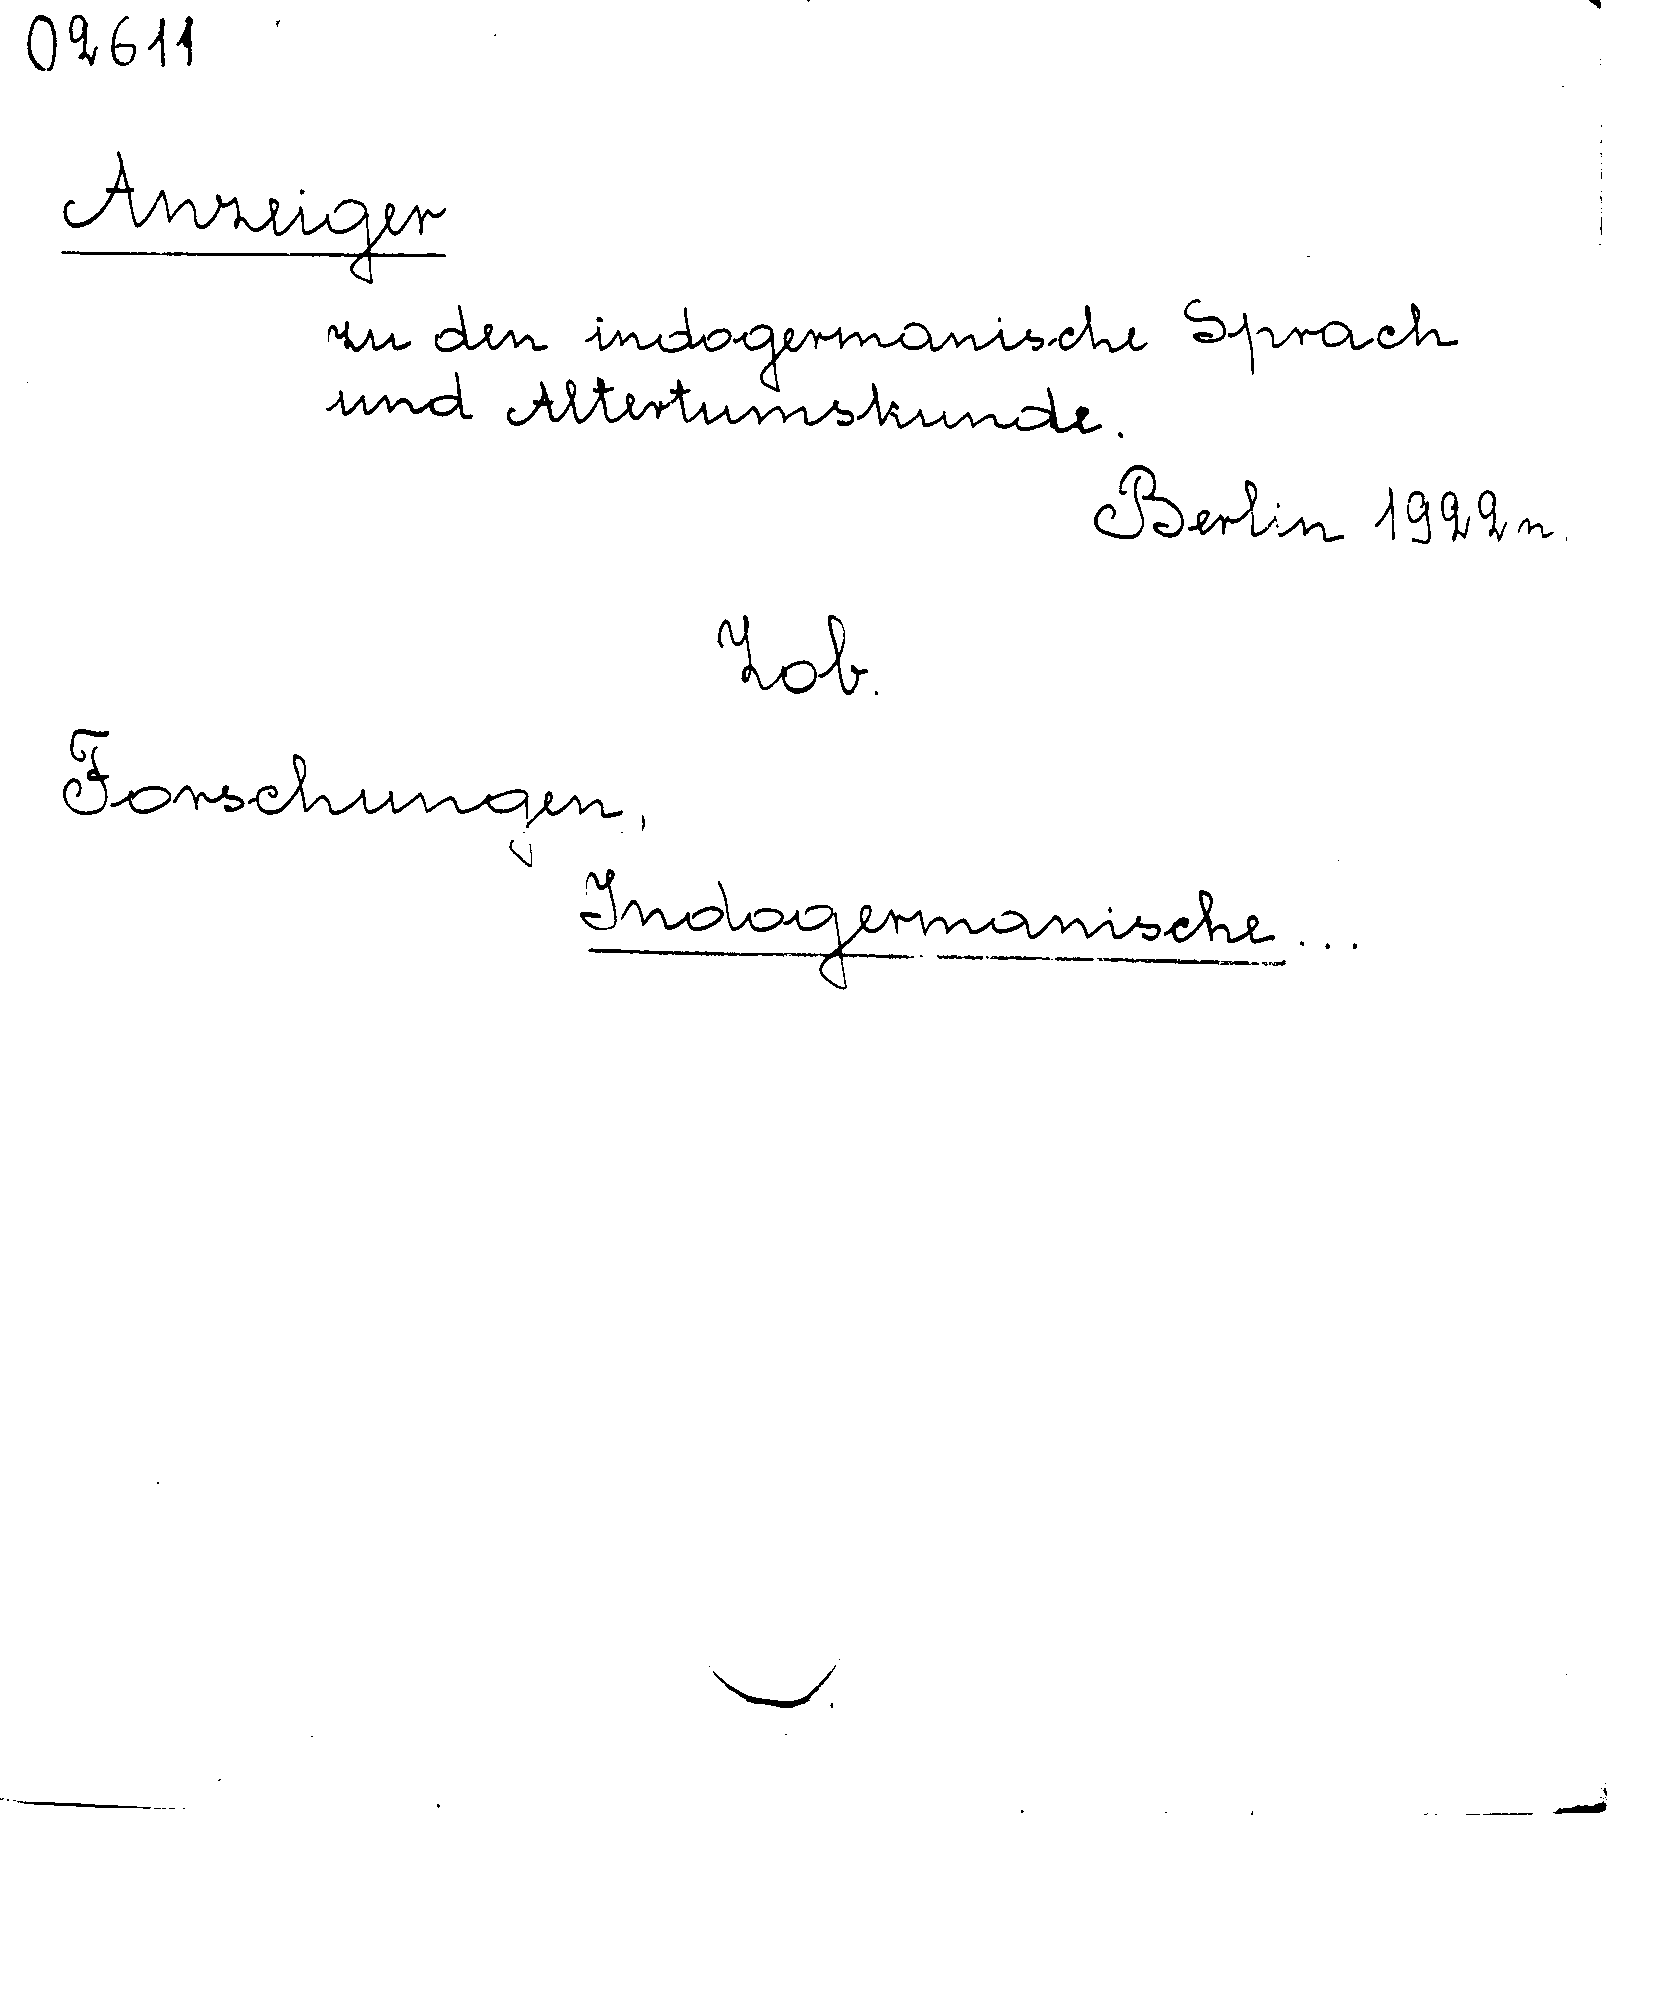 02611
Anzeiger
zu den indogermanische Sprach
und Altertumskunde.
Berlin 1922 r.
Zob.
Forschungen,
Indogermanische...